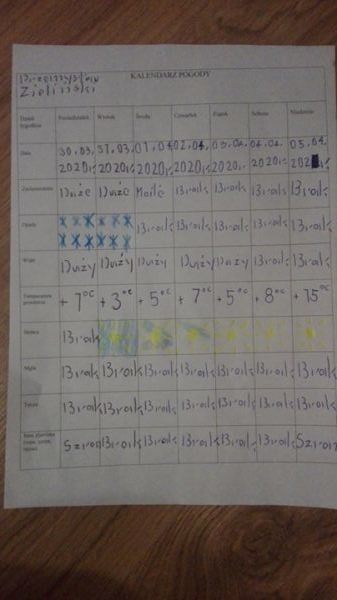 Przemysław
Zieliński
KALENDARZ POGODY
Dzień tygodnia Poniedziałek Wtorek Środa Czwartek Piątek Sobota Niedziela
Data 30.03. 2020r. 31.03 2020r. 01.04 2020r. 02.04. 2020r. 03.04. 2020r. 04.04. 2020r. 05.04.
Zachmurzenie Duże Duże Małe Brak Brak Brak Brak
Opady Brak Brak Brak Brak Brak
Wiatr Duży Duży Duży Duży Duży Brak Brak
Temperatura powietrza +7°C +3°C +5°C +7°C +5°C +8°C +15°C
Słońce Brak
Mgła Brak Brak Brak Brak Brak Brak Brak
Tęcza Brak Brak Brak Brak Brak Brak Brak
Inne zjawiska Szron Brak Brak Brak Brak Brak Szron